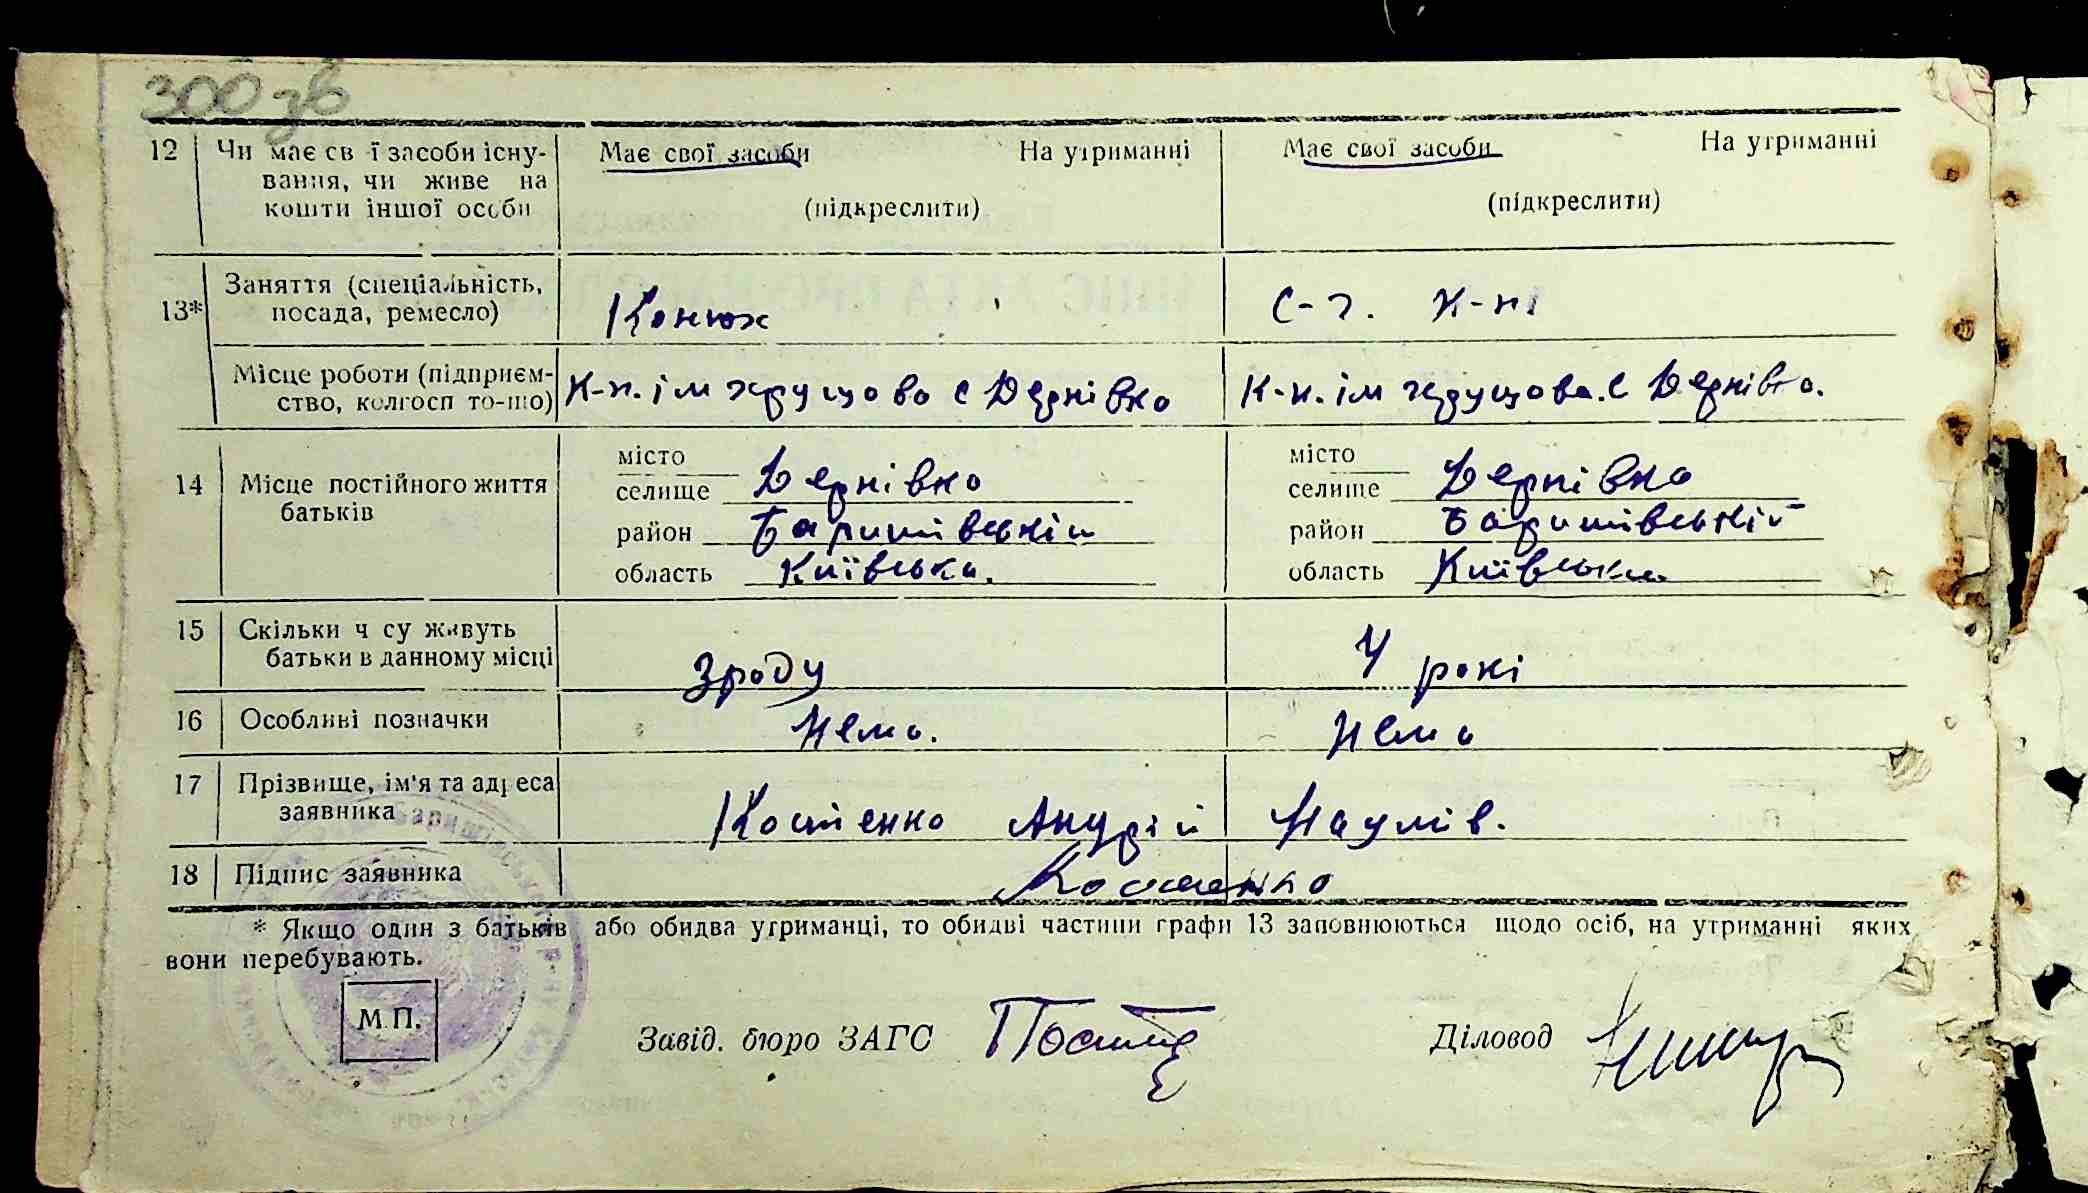 300 зв
12 Чи має св ї засоби існу- Має свої засоби На утриманні Має свої засоби На утриманні
вання, чи живе на
кошти іншої особи (підкреслити) (підкреслити)
13* Заняття (спеціальність,
посада, ремесло) Конюх С-г. к-ні
Місце роботи (підприєм-
ство, колгосп то-що) К-п. ім Хрущова с Дернівка К-п. ім Хрущова. с Дернівка.
14 Місце постійного життя
батьків
місто місто
селище Дернівка селище Дернівка
район Баришівський район Баришівський
область Київська. область Київська
15 Скільки ч су живуть
батьки в данному місці Зроду 4 рокі
16 Особливі позначки Нема. Нема
17 Прізвище, ім'я та адреса
заявника Костенко Андрій Наумів.
18 Підпис заявника Костенко
* Якщо один з батьків або обидва утриманці, то обидві частини графи 13 заповнюються щодо осіб, на утриманні яких
вони перебувають.
М.П.
Завід. бюро ЗАГС Діловод